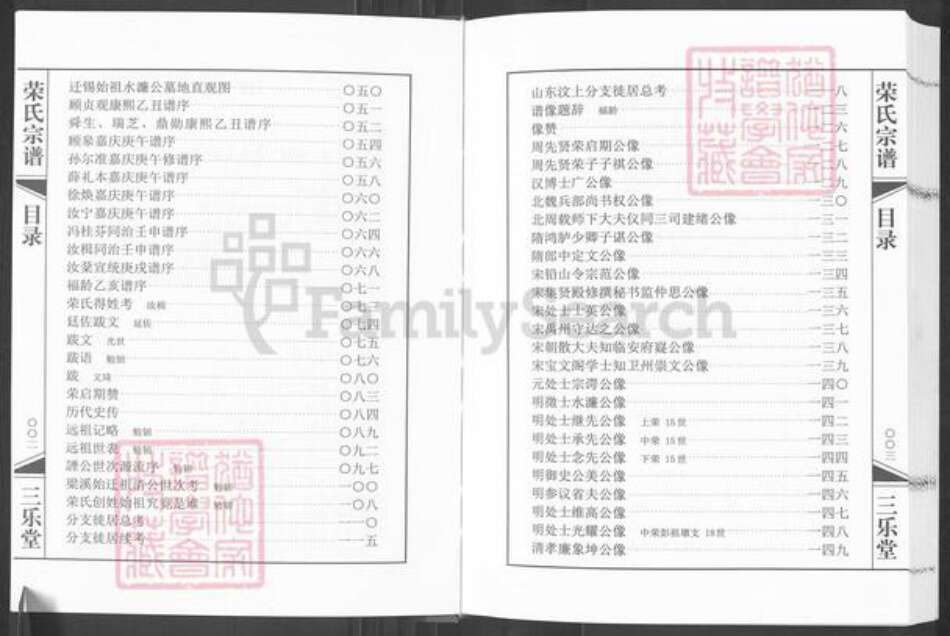 荣氏宗谱
目录
〇〇二
三乐堂
迁锡始祖水濂公墓地直观图 〇五〇
顾贞观康熙乙丑谱序 〇五一
舜生、瑞芝、鼎勋康熙乙丑谱序 〇五二
顾皋嘉庆庚午谱序 〇五四
孙尔准嘉庆庚午修谱序 〇五六
薛礼本嘉庆庚午谱序 〇五八
徐焕嘉庆庚午谱序 〇六〇
汝宁嘉庆庚午谱序 〇六二
冯桂芬同治壬申谱序 〇六四
汝楫同治壬申谱序 〇六六
汝棻宣统庚戌谱序 〇六八
福龄乙亥谱序 〇七一
荣氏得姓考 〇七二
廷佐跋文 廷佐 〇七四
跋文 光世 〇七五
跋语 勉韧 〇七六
跋 〇八〇
荣启期赞 〇八三
历代史传 〇八四
远祖记略 勉韧 〇八九
远祖世表 勉韧 〇九二
公世次源流序 勉韧 〇九七
梁溪始迁祖清公世次考 勉韧 一〇〇
荣氏创姓始祖究竟是谁 勉韧 一〇八
分支徙居总考 一一〇
分支徙居续考 一一五
山东汶上分支徙居总考 一一八
谱像题辞 福龄 一二三
像赞 一二六
周先贤荣启期公像 一二七
周先贤荣子子祺公像 一二八
汉博士广公像 一二九
北魏兵部尚书权公像 一三〇
北周载师下大夫仪同三司建绪公像 一三一
隋鸿胪少卿子谌公像 一三二
隋郎中定文公像 一三三
宋铅山令宗范公像 一三四
宋集贤殿修撰秘书监仲思公像 一三五
宋处士士英公像 一三六
宋禹州守达之公像 一三七
宋朝散大夫知临安府嶷公像 一三八
宋宝文阁学士知卫州崇文公像 一三九
元处士宗谔公像 一四〇
明徵士水濂公像 一四一
明处士继先公像 上荣 15世 一四二
明处士承先公像 中荣 15世 一四三
明处士念先公像 下荣 15世 一四四
明御史公美公像 一四五
明参议省夫公像 一四六
明处士维高公像 一四七
明处士光耀公像 中荣彭祖墩支 18世 一四八
清孝廉象坤公像 一四九
荣氏宗谱
目录
〇〇三
三乐堂
FamilySearch